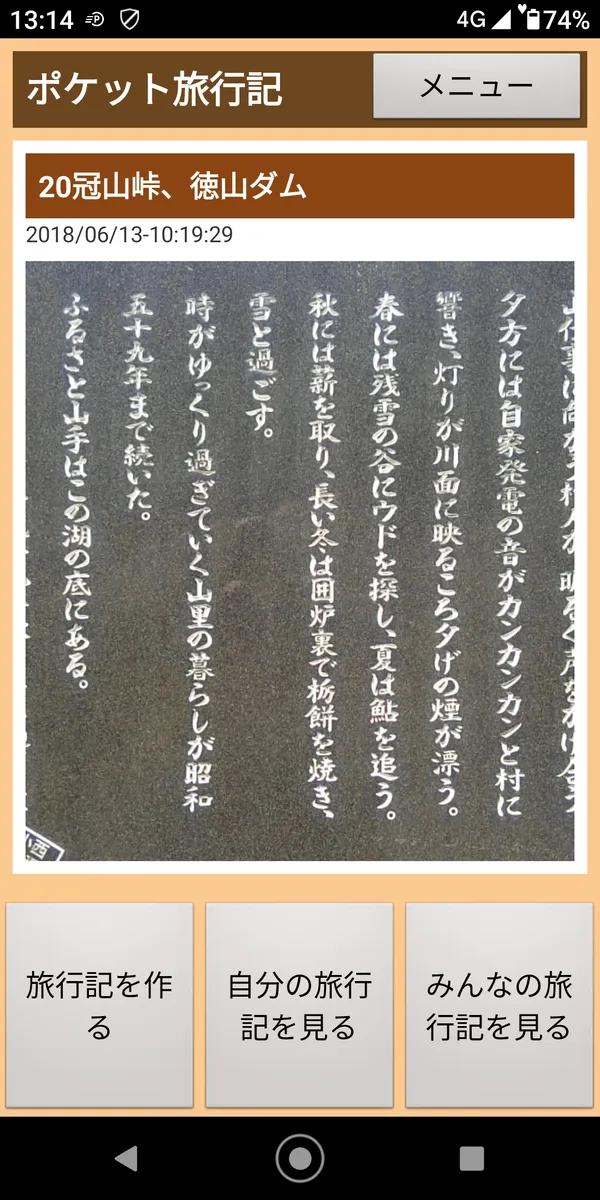 13:14
4G
74%
ポケット旅行記
メニュー
20冠山峠、徳山ダム
2018/06/13-10:19:29
夕方には自家発電の音がカンカンカンと村に
響き、灯りが川面に映るころ夕げの煙が漂う。
春には残雪の谷にウドを探し、夏は鮎を追う。
秋には薪を取り、長い冬は囲炉裏で栃餅を焼き、
雪と過ごす。
時がゆっくり過ぎていく山里の暮らしが昭和
五十九年まで続いた。
ふるさと山手はこの湖の底にある。
旅行記を作
る
自分の旅行
記を見る
みんなの旅
行記を見る